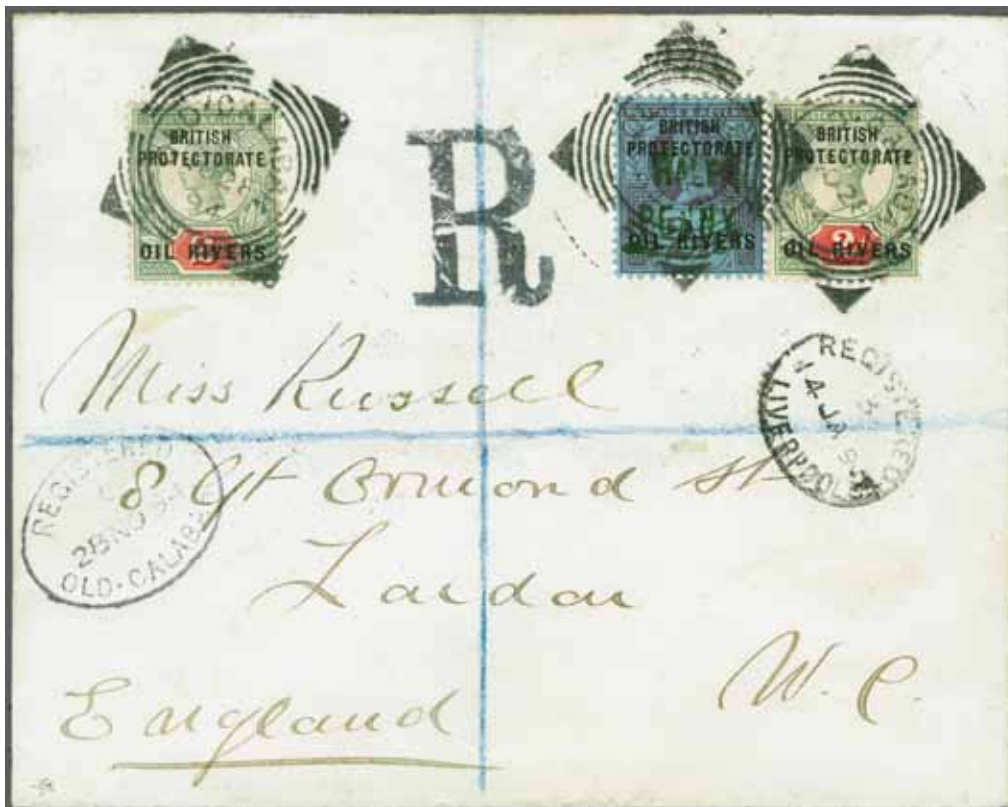 BRITISH
PROTECTORATE
OIL RIVERS
R
BRITISH
PROTECTORATE
HALF
PENNY
OIL RIVERS
BRITISH
PROTECTORATE
2d
OIL RIVERS
Miss Russell
REGISTERED
4 JA 95
LIVERPOOL
8 Gt Ormond St
REGISTERED
28 NO 94
OLD-CALABAR
London
W. C.
England